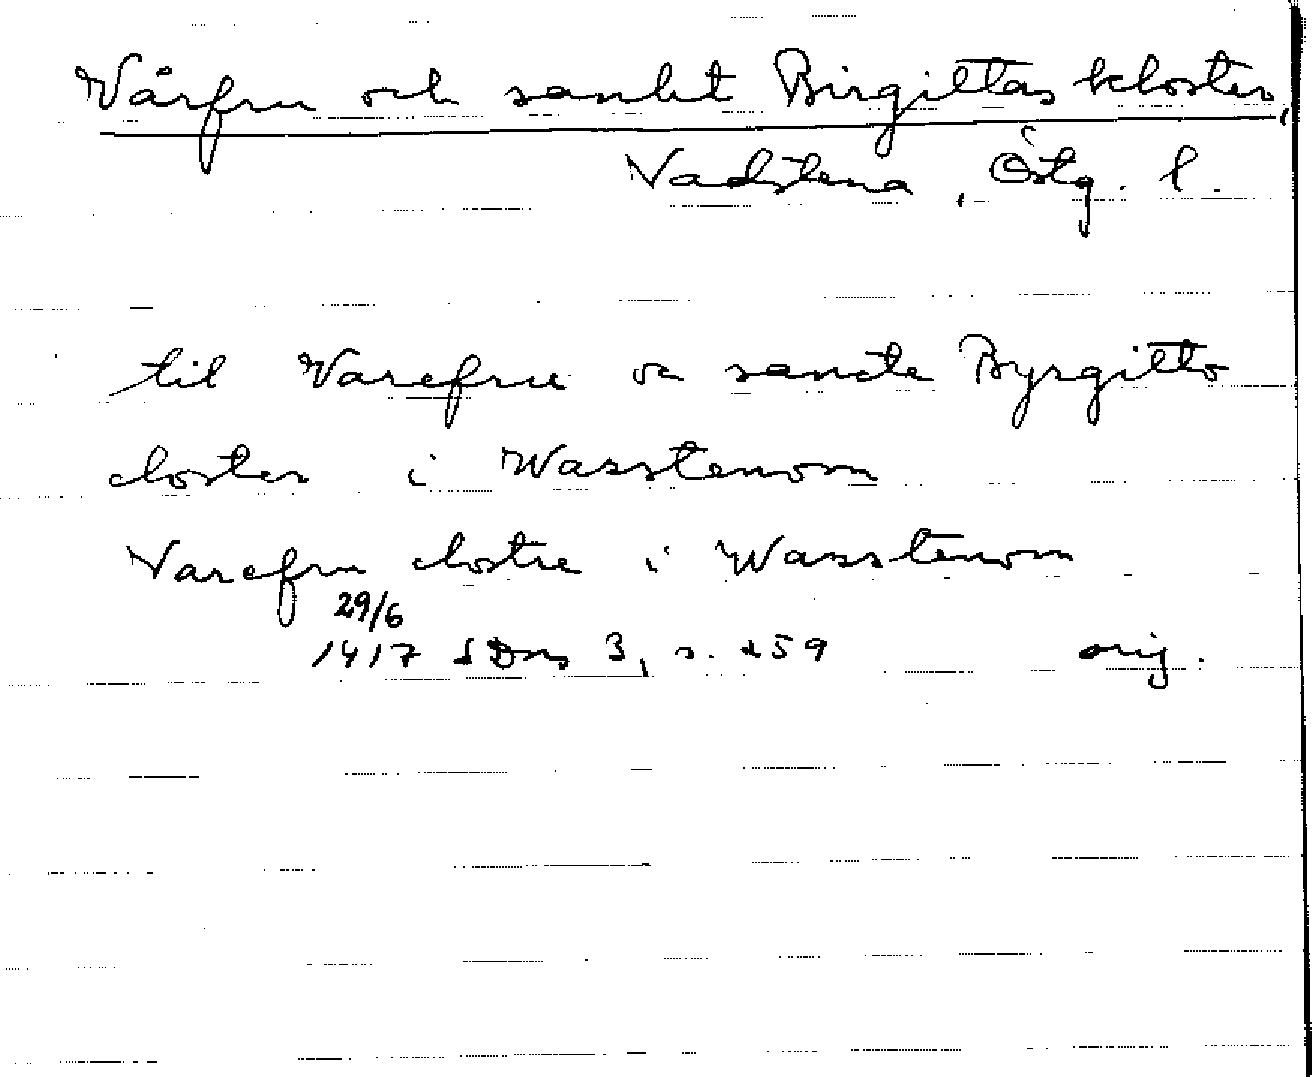 Vårfru och sankt Birgittas kloster,
Vadstena, Östg. l.
til Varefru oc sancte Byrgitto
closter i Wasstenom
Varefru clostre i Wasstenom
29/6
1417 SDns 3, s. 259 orig.